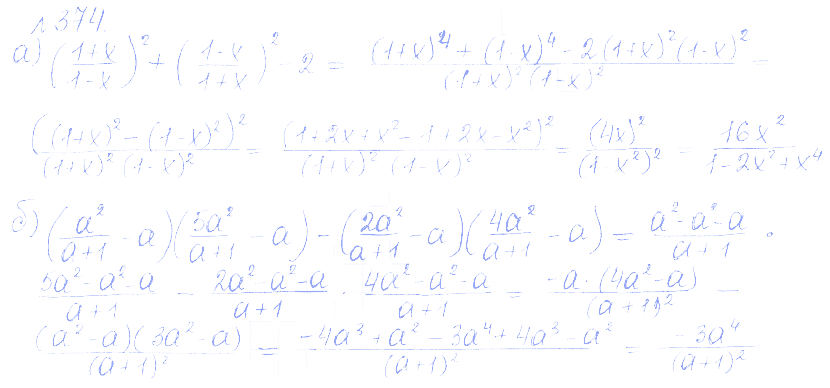 № 374.
а) ((1+x)/(1-x))² + ((1-x)/(1+x))² - 2 = ((1+x)⁴ + (1-x)⁴ - 2(1+x)²(1-x)²)/((1+x)²(1-x)²) =
((1+x)² - (1-x)²)²/((1+x)²(1-x)²) = (1+2x+x²-1+2x-x²)²/((1+x)²(1-x)²) = (4x)²/(1-x²)² = 16x²/(1-2x²+x⁴)
б) (a²/(a+1) - a)(5a²/(a+1) - a) - (2a²/(a+1) - a)(4a²/(a+1) - a) = (a²-a²-a)/(a+1) ·
(5a²-a²-a)/(a+1) - (2a²-a²-a)/(a+1) · (4a²-a²-a)/(a+1) = (-a·(4a²-a))/(a+1)² -
((a²-a)(3a²-a))/(a+1)² = (-4a³+a²-3a⁴+4a³-a²)/(a+1)² = (-3a⁴)/(a+1)²